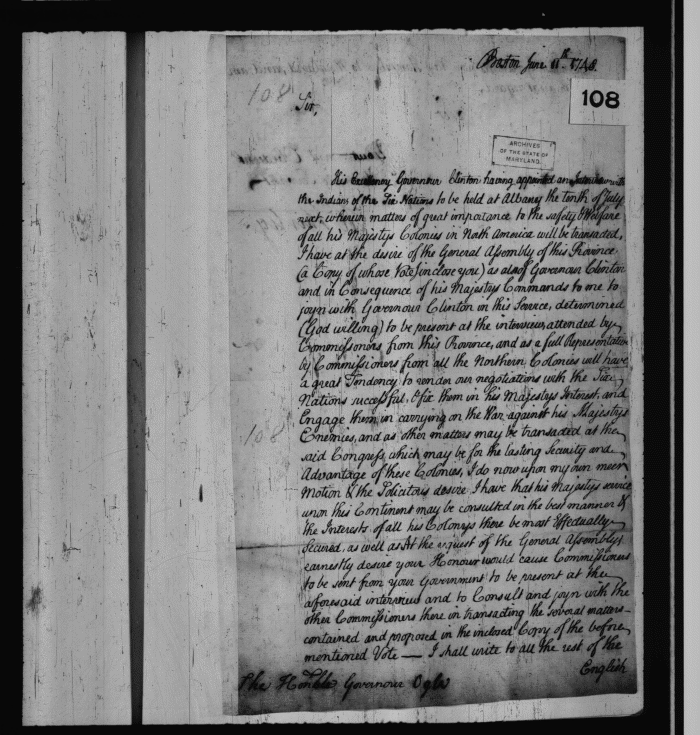 Boston June 11th. 1748.
108
108
Sir,
ARCHIVES
OF THE STATE OF
MARYLAND.
His Excellency Governour Clinton having appointed an Interview with
the Indians of the Six Nations to be held at Albany the tenth of July
next, wherein matters of great importance to the safety & Welfare
of all his Majestys Colonies in North America will be transacted,
I have at the desire of the General Assembly of this Province
(a Copy of whose Vote I inclose you) as also of Governour Clinton
and in Consequence of his Majestys Commands to me to
joyn with Governour Clinton in this Service, determined
(God willing) to be present at the interview, attended by
Commissioners from this Province, and as a full Representation
by Commissioners from all the Northern Colonies will have
a great Tendency to render our negotiations with the Six
Nations successful, & fix them in his Majestys Interest, and
Engage them in carrying on the War against his Majestys
Enemies, and as other matters may be transacted at the
said Congress, which may be for the lasting Security and
Advantage of these Colonies, I do now upon my own meer
Motion & the Solicitous desire I have that his Majestys service
upon this Continent may be consulted in the best manner &
the Interests of all his Colonys there be most Effectually
Secured, as well as At the request of the General Assembly,
earnestly desire your Honour would cause Commissioners
to be sent from your Government to be present at the
afforesaid interview and to Consult and joyn with the
other Commissioners there in transacting the several matters
contained and proposed in the inclosed Copy of the before
mentioned Vote — I shall write to all the rest of the
English
The Honble Governour Ogle
108